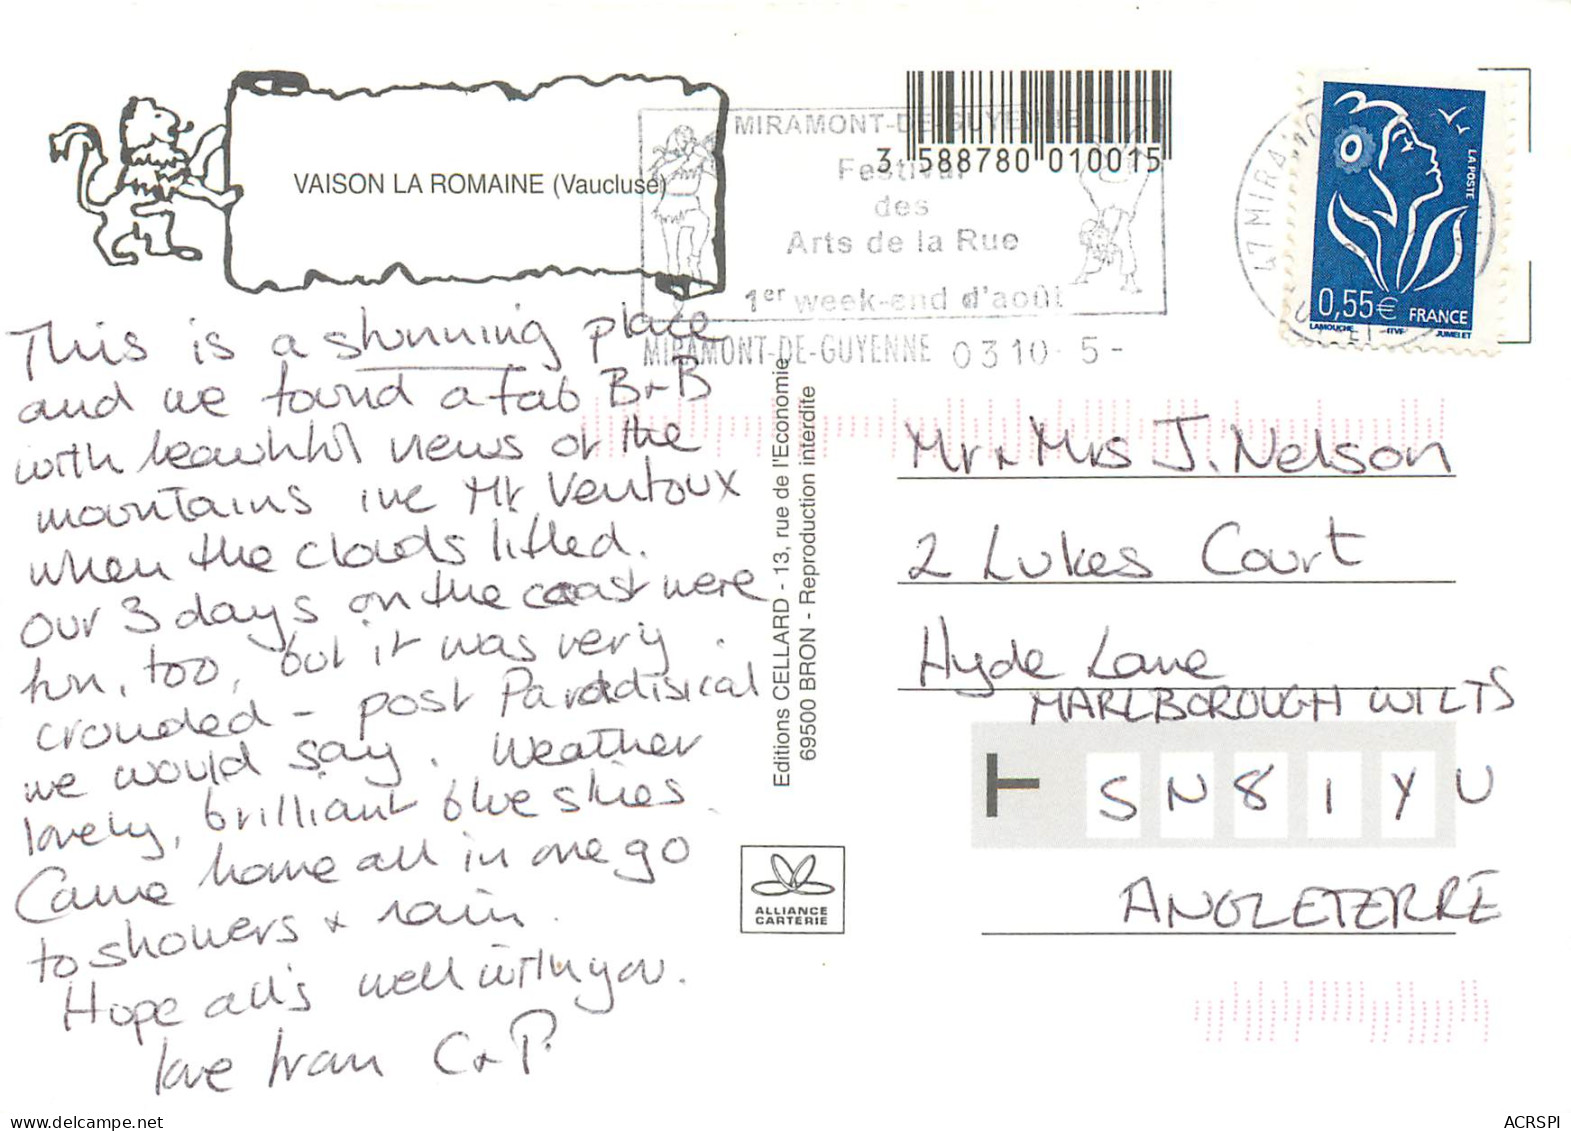 VAISON LA ROMAINE (Vaucluse)
This is a stunning place
and we found a fab B+B
with beautiful views of the
mountains inc Mt Ventoux
when the clouds lifted.
Our 3 days on the coast were
fun, too, but it was very
crowded - post Paradisical
we would say. Weather
lovely, brilliant blue skies.
Came home all in one go
to showers + rain.
Hope all's well with you.
love from C + P.
MIRAMONT-DE-GUYENNE
Festival
des
Arts de la Rue
1er week-end d'août
MIRAMONT-DE-GUYENNE 0310 - 5 -
3 588780 010015
47 MIRA
LA POSTE
0,55€ FRANCE
LAMOUCHE - ITVF JUMELET
Editions CELLARD - 13, rue de l'Economie
69500 BRON - Reproduction interdite
Mr + Mrs J. Nelson
2 Lukes Court
Hyde Lane
MARLBOROUGH WILTS
SN8 1YU
ANGLETERRE
ALLIANCE
CARTERIE
www.delcampe.net
ACRSPI